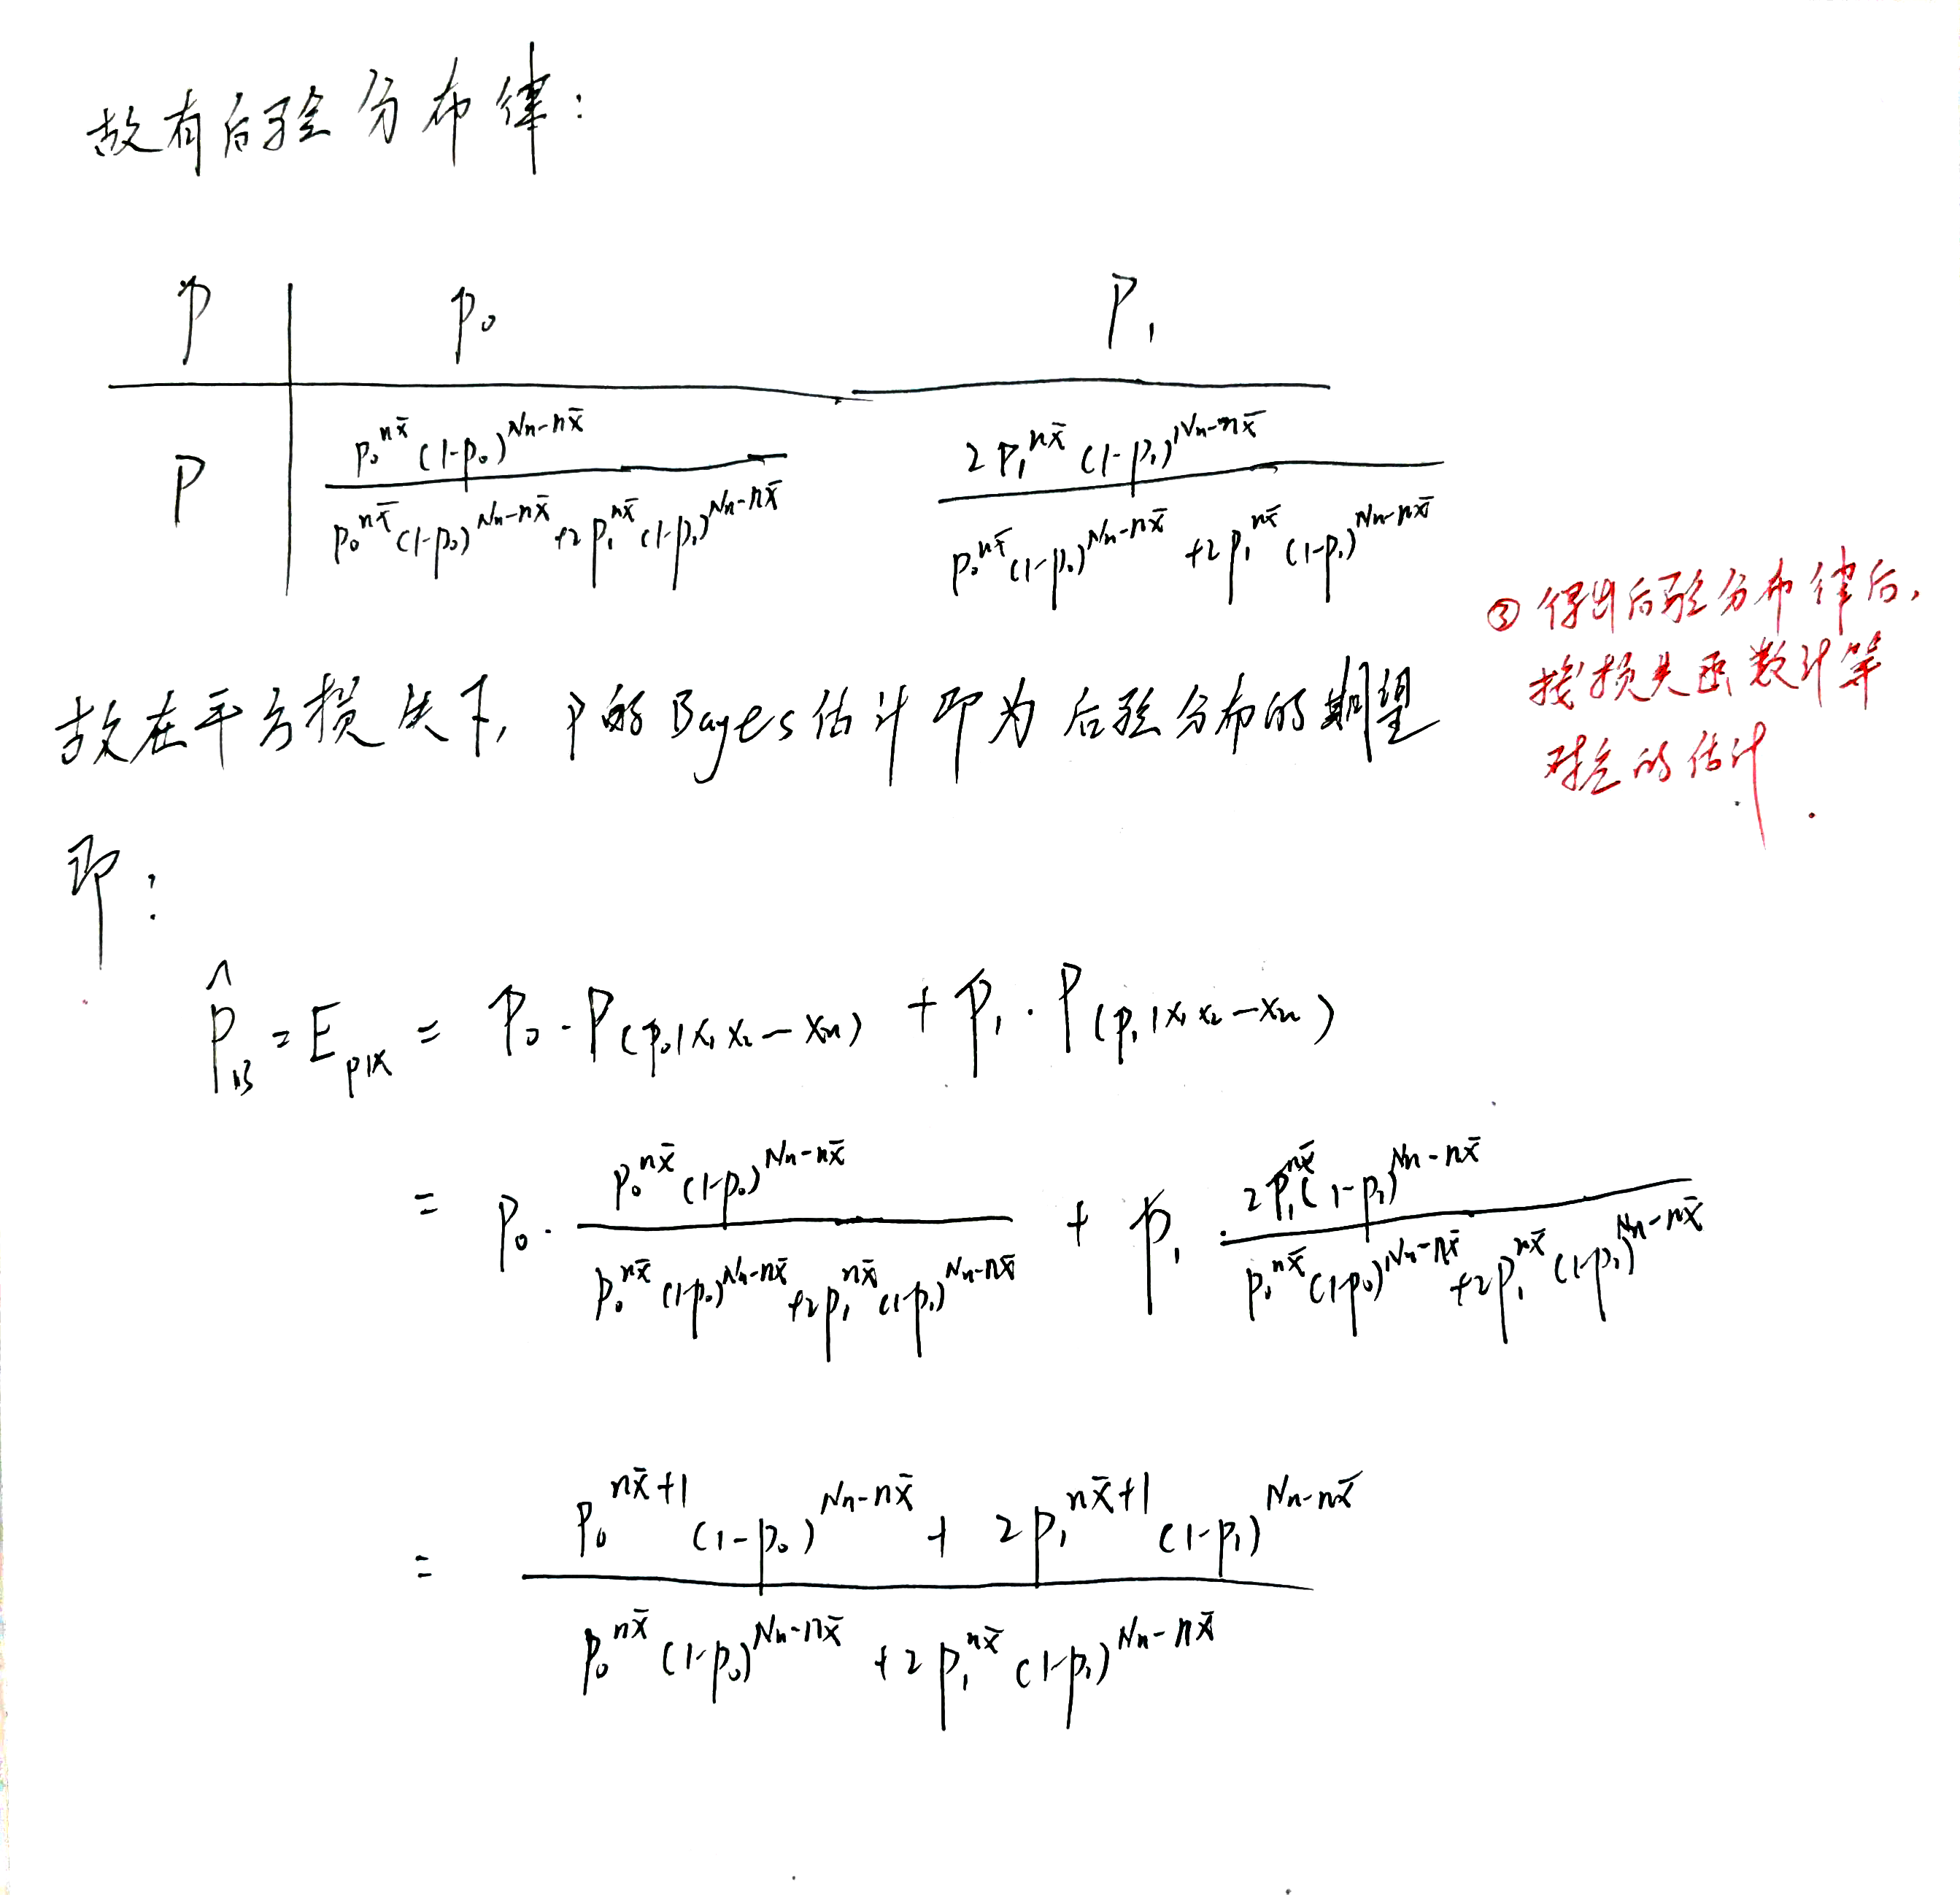 故有后验分布律：
p p₀ p₁
P \frac{p_0^{n\bar{x}}(1-p_0)^{Nn-n\bar{x}}}{p_0^{n\bar{x}}(1-p_0)^{Nn-n\bar{x}}+2p_1^{n\bar{x}}(1-p_1)^{Nn-n\bar{x}}} \frac{2p_1^{n\bar{x}}(1-p_1)^{Nn-n\bar{x}}}{p_0^{n\bar{x}}(1-p_0)^{Nn-n\bar{x}}+2p_1^{n\bar{x}}(1-p_1)^{Nn-n\bar{x}}}
得出后验分布律后，
按损失函数计算
对应的估计.
故在平方损失下, p的Bayes估计即为后验分布的期望
即：
\hat{p}_B = E_{p|x} = p_0·P(p_0|x_1 x_2 — x_n) + p_1·P(p_1|x_1 x_2 — x_n)
= p_0·\frac{p_0^{n\bar{x}}(1-p_0)^{Nn-n\bar{x}}}{p_0^{n\bar{x}}(1-p_0)^{Nn-n\bar{x}}+2p_1^{n\bar{x}}(1-p_1)^{Nn-n\bar{x}}} + p_1·\frac{2p_1^{n\bar{x}}(1-p_1)^{Nn-n\bar{x}}}{p_0^{n\bar{x}}(1-p_0)^{Nn-n\bar{x}}+2p_1^{n\bar{x}}(1-p_1)^{Nn-n\bar{x}}}
= \frac{p_0^{n\bar{x}+1}(1-p_0)^{Nn-n\bar{x}}+2p_1^{n\bar{x}+1}(1-p_1)^{Nn-n\bar{x}}}{p_0^{n\bar{x}}(1-p_0)^{Nn-n\bar{x}}+2p_1^{n\bar{x}}(1-p_1)^{Nn-n\bar{x}}}